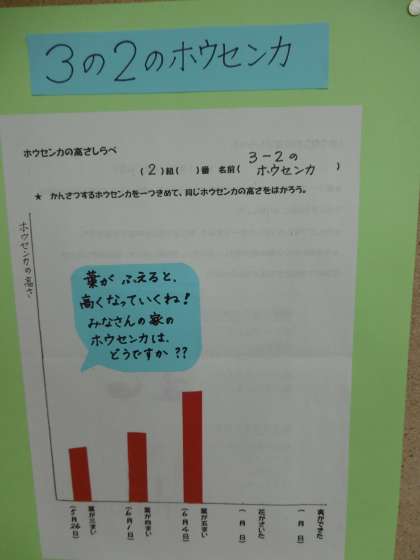 3の2のホウセンカ
ホウセンカの高さしらべ
(2)組( )番 名前( 3-2の ホウセンカ )
★ かんさつするホウセンカを一つきめて、同じホウセンカの高さをはかろう。
ホウセンカの高さ
葉が ふえると、
高くなっていくね!
みなさんの家の
ホウセンカは、
どうですか??
葉が三まい
(5月26日)
葉が四まい
(6月1日)
葉が五まい
(6月4日)
花がさいた
( 月 日)
実ができた
( 月 日)